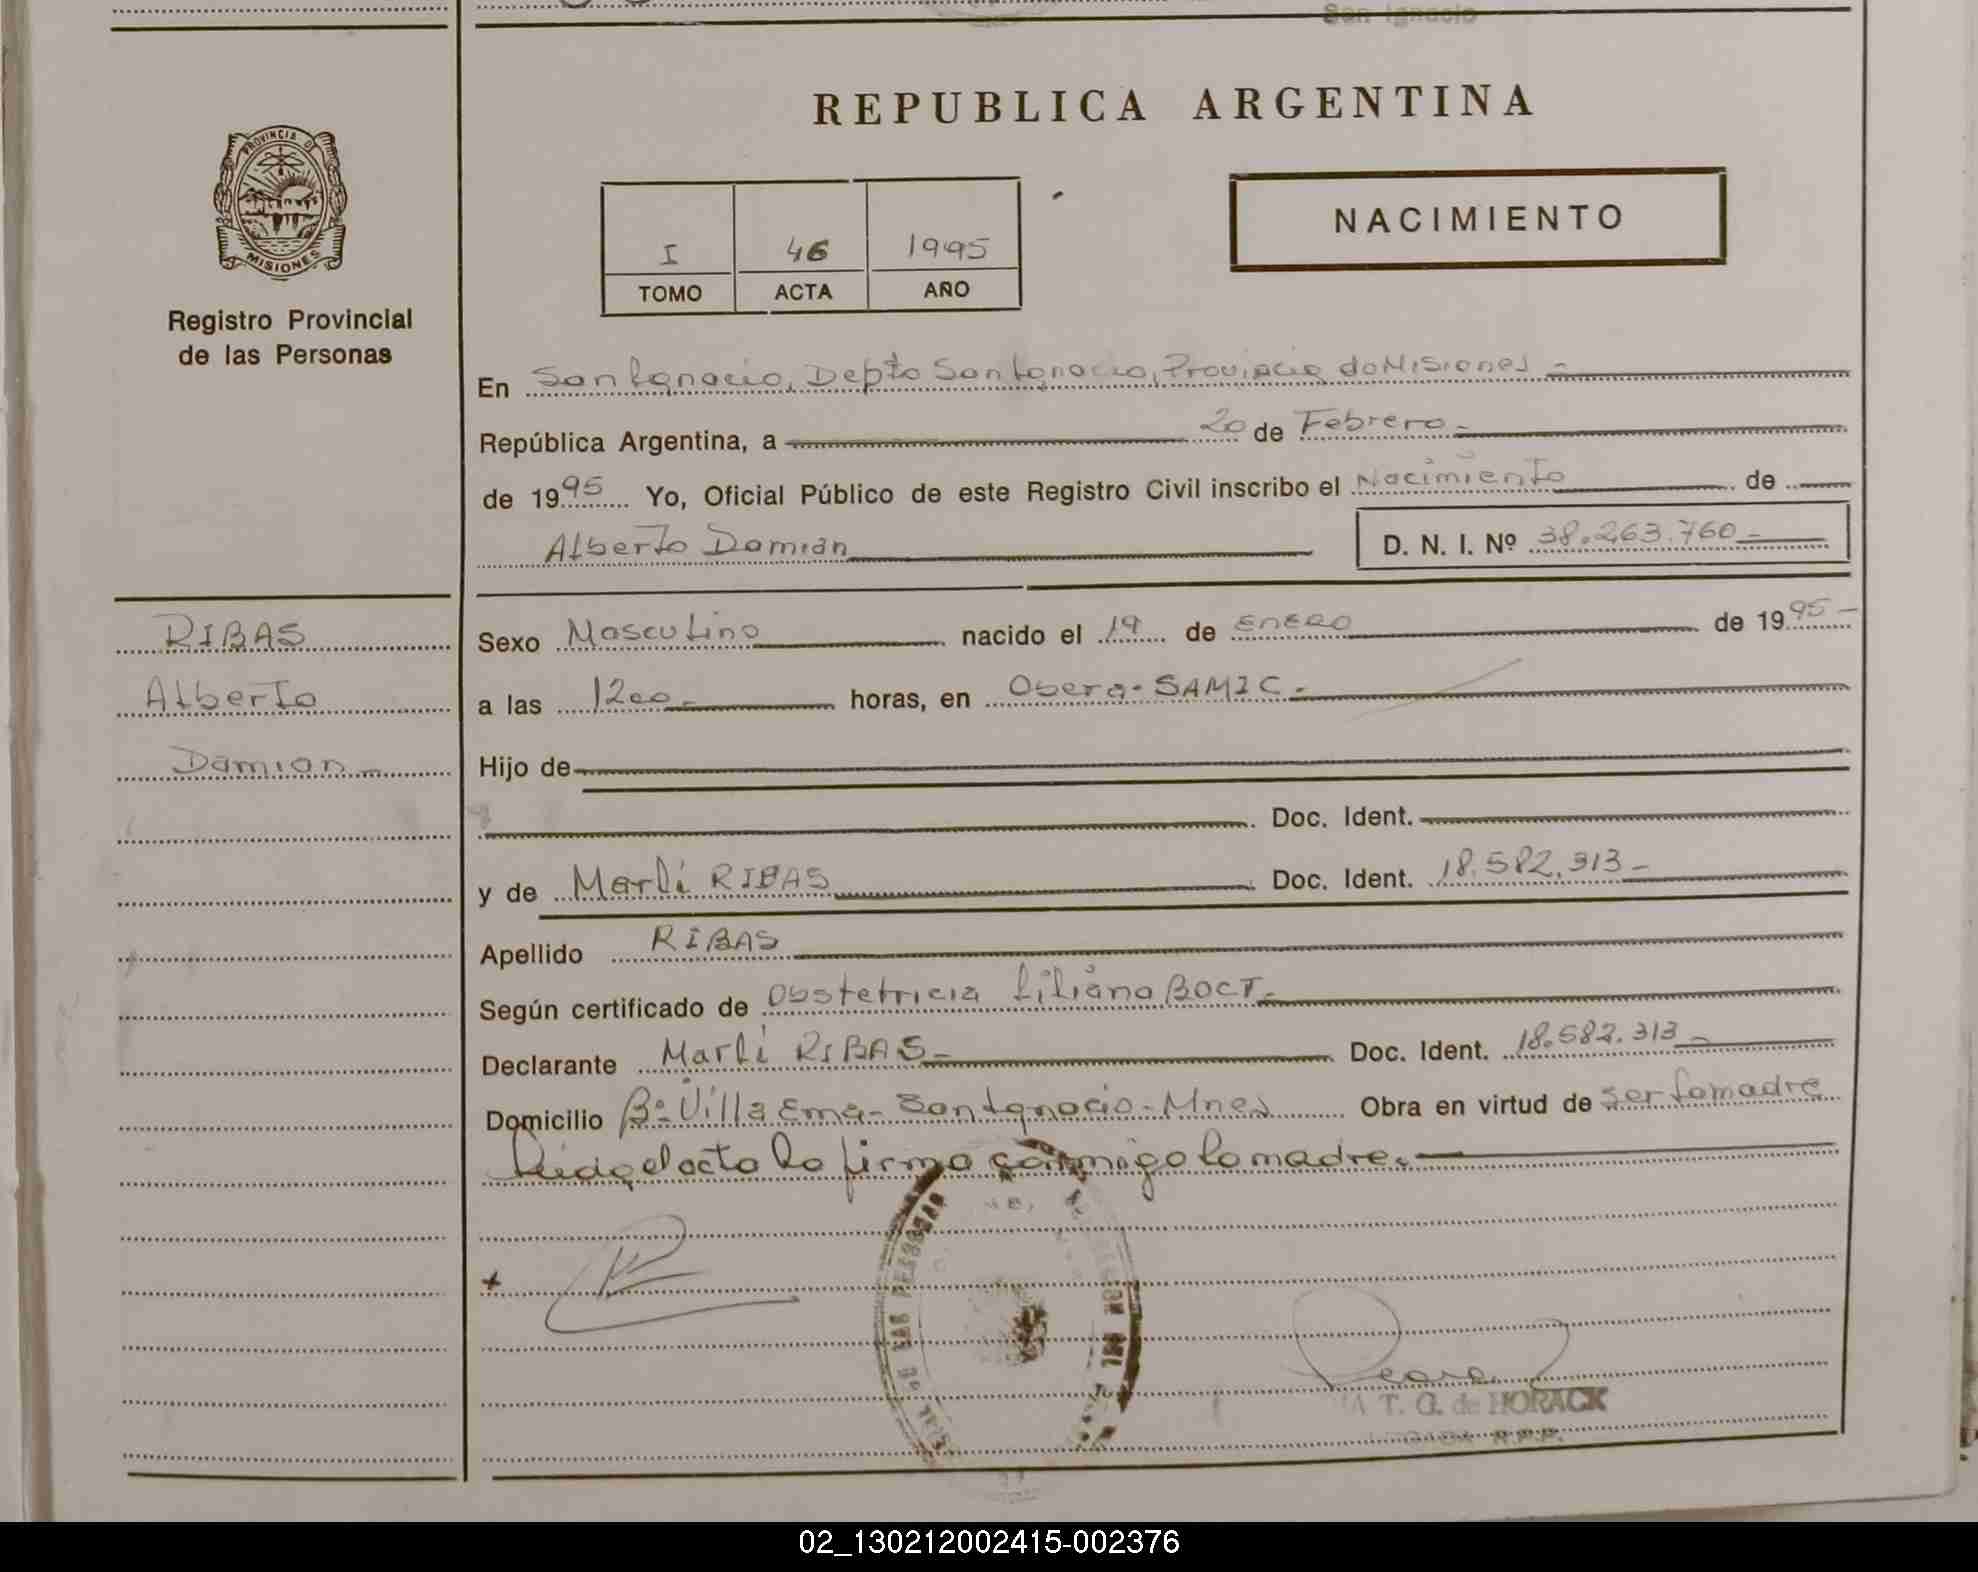 San Ignacio
PROVINCIA DE
MISIONES
Registro Provincial
de las Personas
REPUBLICA ARGENTINA
I 46 1995
TOMO ACTA AÑO
NACIMIENTO
En San Ignacio, Depto San Ignacio, Provincia de Misiones -
República Argentina, a 20 de Febrero -
de 1995 Yo, Oficial Público de este Registro Civil inscribo el Nacimiento de
Alberto Damian D. N. I. Nº 38.263.760 -
RIBAS
Alberto
Damian -
Sexo Masculino nacido el 19 de ENERO de 1995 -
a las 1200 - horas, en Obera - SAMIC -
Hijo de
Doc. Ident.
y de Marli RIBAS Doc. Ident. 18.582.313 -
Apellido RIBAS
Según certificado de Obstetricia Liliana BOCT -
Declarante Marli RIBAS - Doc. Ident. 18.582.313 -
Domicilio Bº Villa Ema - San Ignacio - Mnes Obra en virtud de ser la madre
Leida el acta la firma conmigo la madre. -
T. G. de HORACK
R.P.P.
02_130212002415-002376